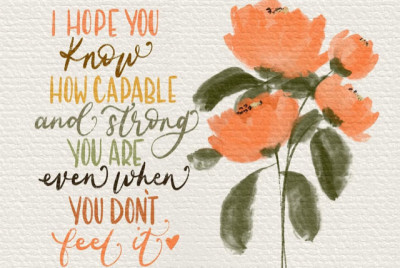 I HOPE YOU
know
HOW CAPABLE
and strong
YOU ARE
even when
YOU DON'T
feel it